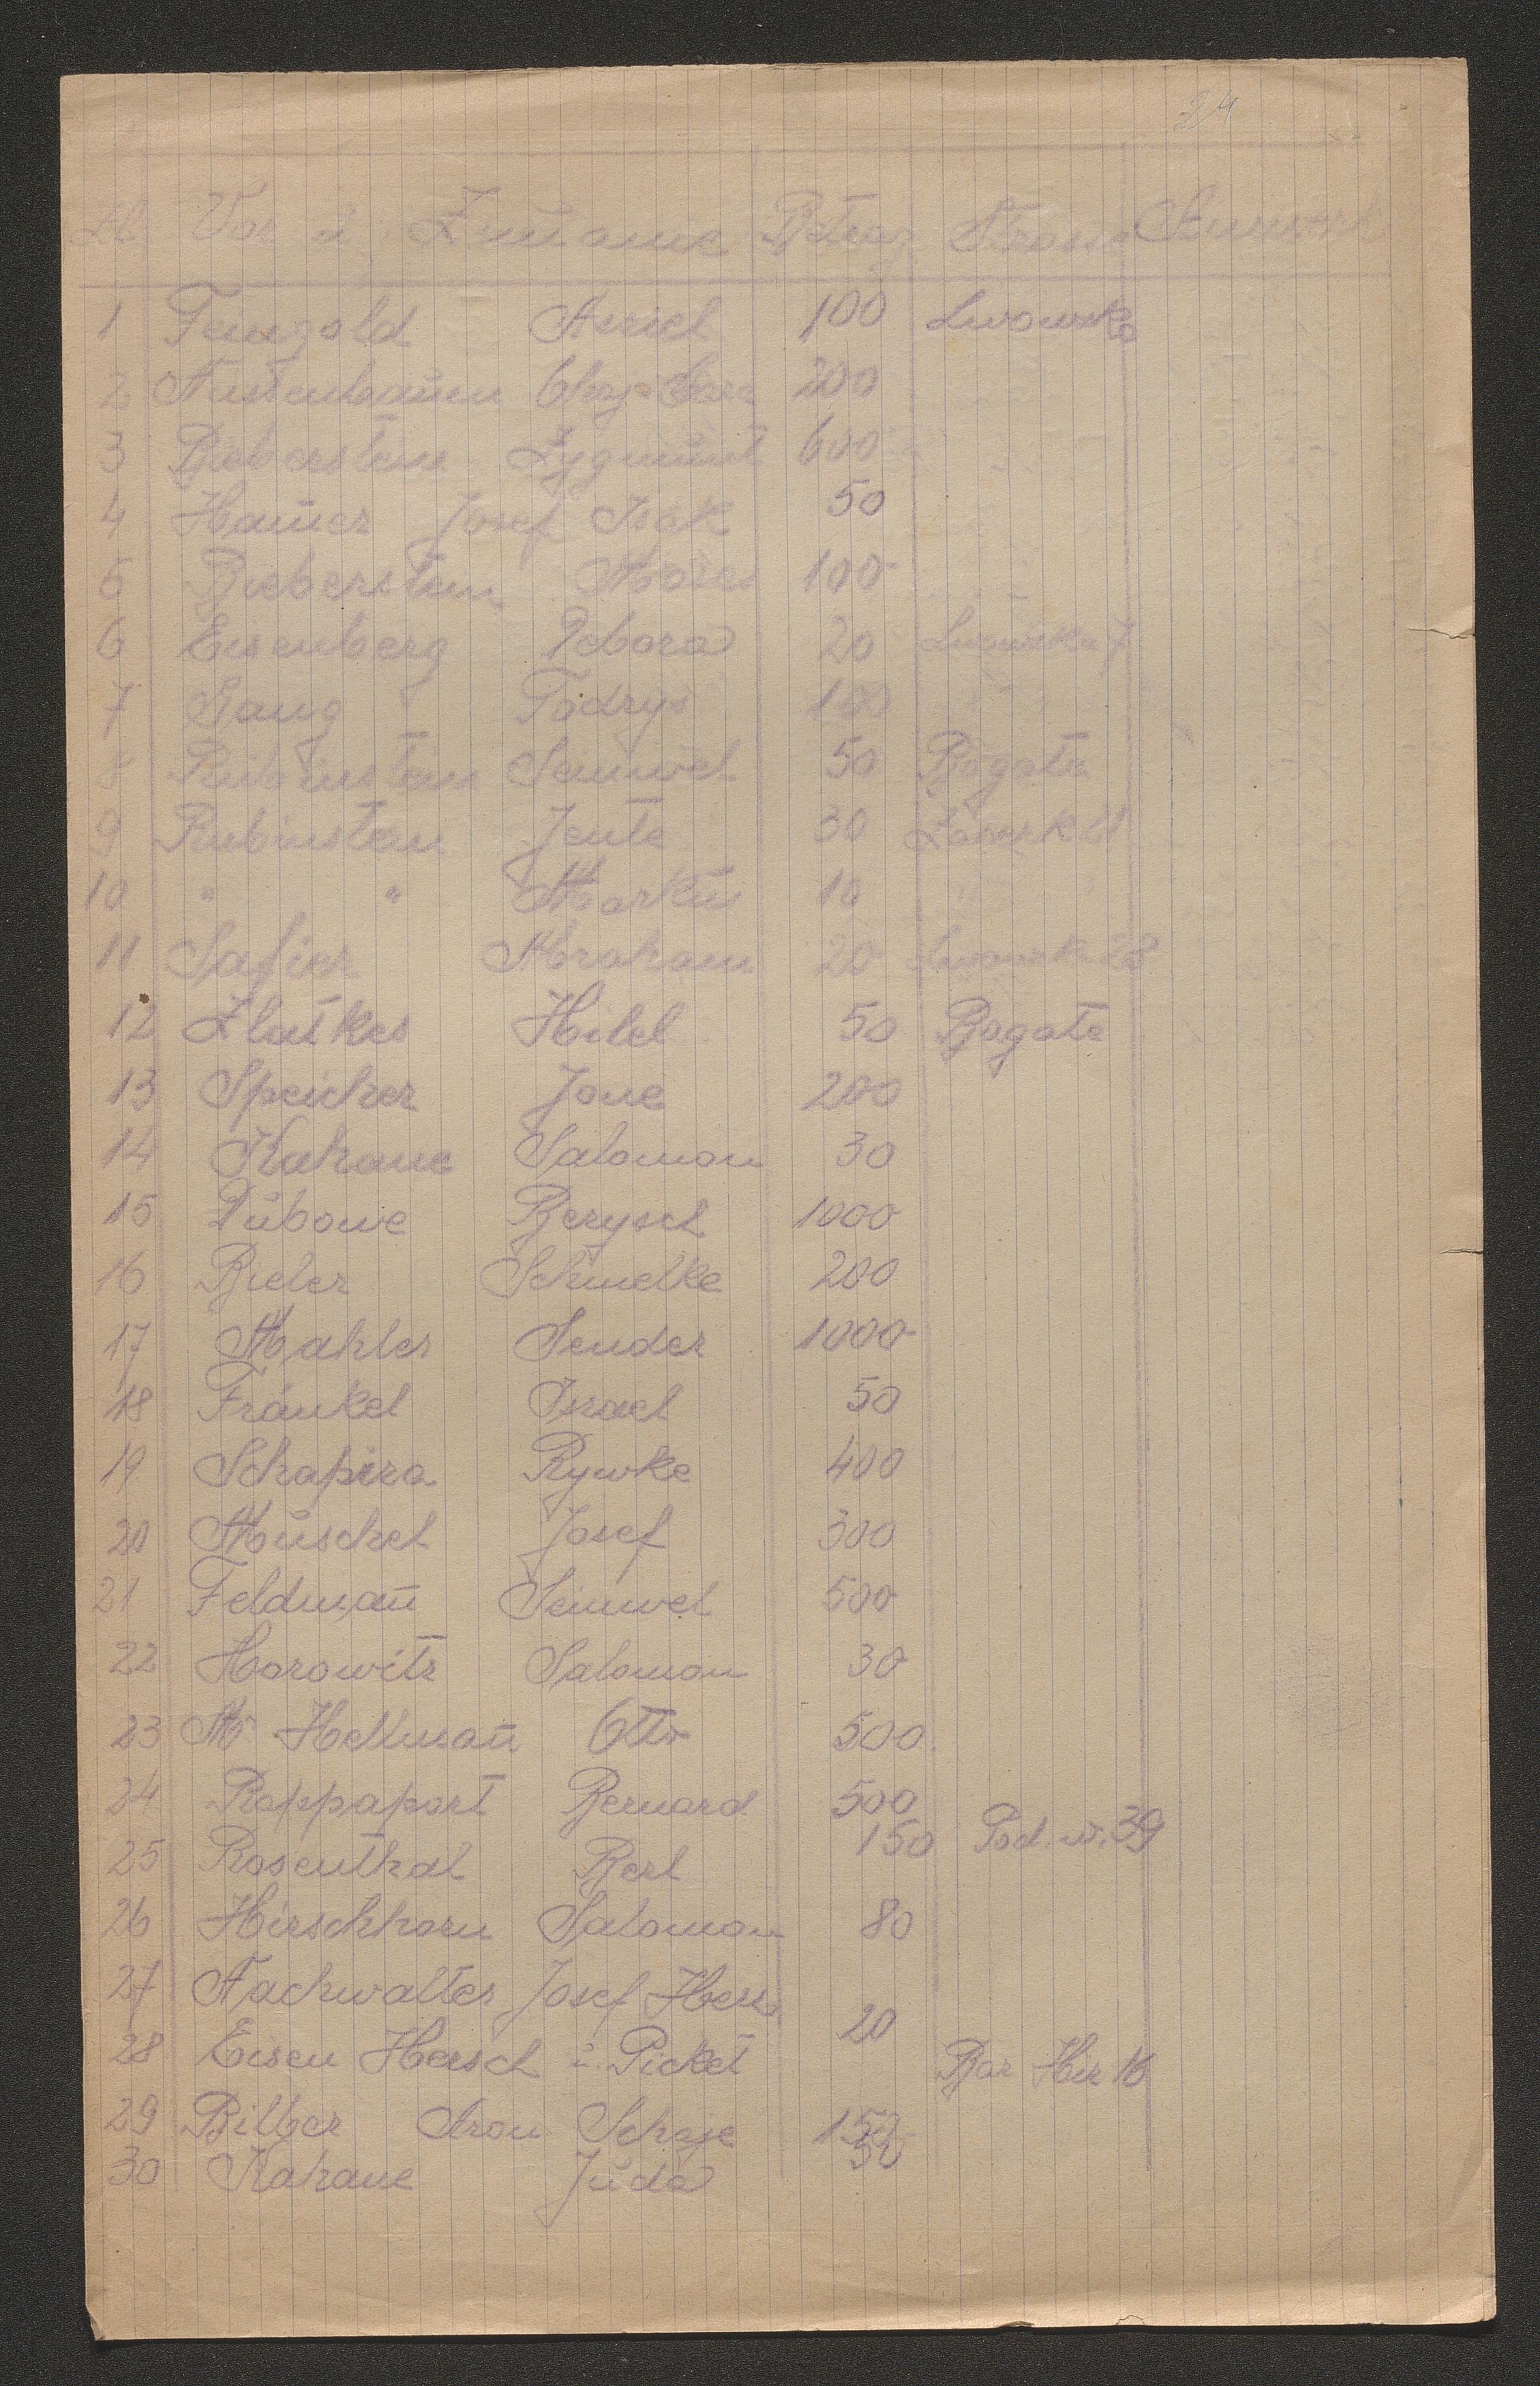 24
Vor ü. Zuname Btrag Strasse
1 Feingold Asriel 100 Lwowska
2 Nussenbaum Chaje Sara 200
3 Bieberstein Zygmunt 600
4 Hauser Josef Isak 50
5 Bieberstein Mozes 100
6 Eisenberg Debora 20 Lwowska 7
7 Lang Todrys 100 "
8 Rubinstein Semuel 50 Bogate
9 Rubinstein Jente 30
10 " " Markus 10 "
11 Safier Abraham 20 Lwowska 28
12 Zlatkes Hilel 50 Bogate
13 Speicher Jone 200
14 Kahane Salomon 30
15 Dübowe Berysch 1000
16 Bieler Schmelke 200
17 Mahler Sender 1000
18 Fränkel Israel 50
19 Schapira Rywke 400
20 Müschel Josef 300
21 Feldmañ Semwel 500
22 Horowitz Salomon 30
23 Mr Hellmañ Otto 500
24 Rappaport Bernard 500
25 Rosenthal Berl 150 Pod. w. 39
26 Hirschhorn Salomon 80
27 Nachwalter Josef Hersch
28 Eisen Hersch ü. Pickel 20 Bar Hir 16
29 Bilber Aron Schyje 150
30 Kahane Jüda 50